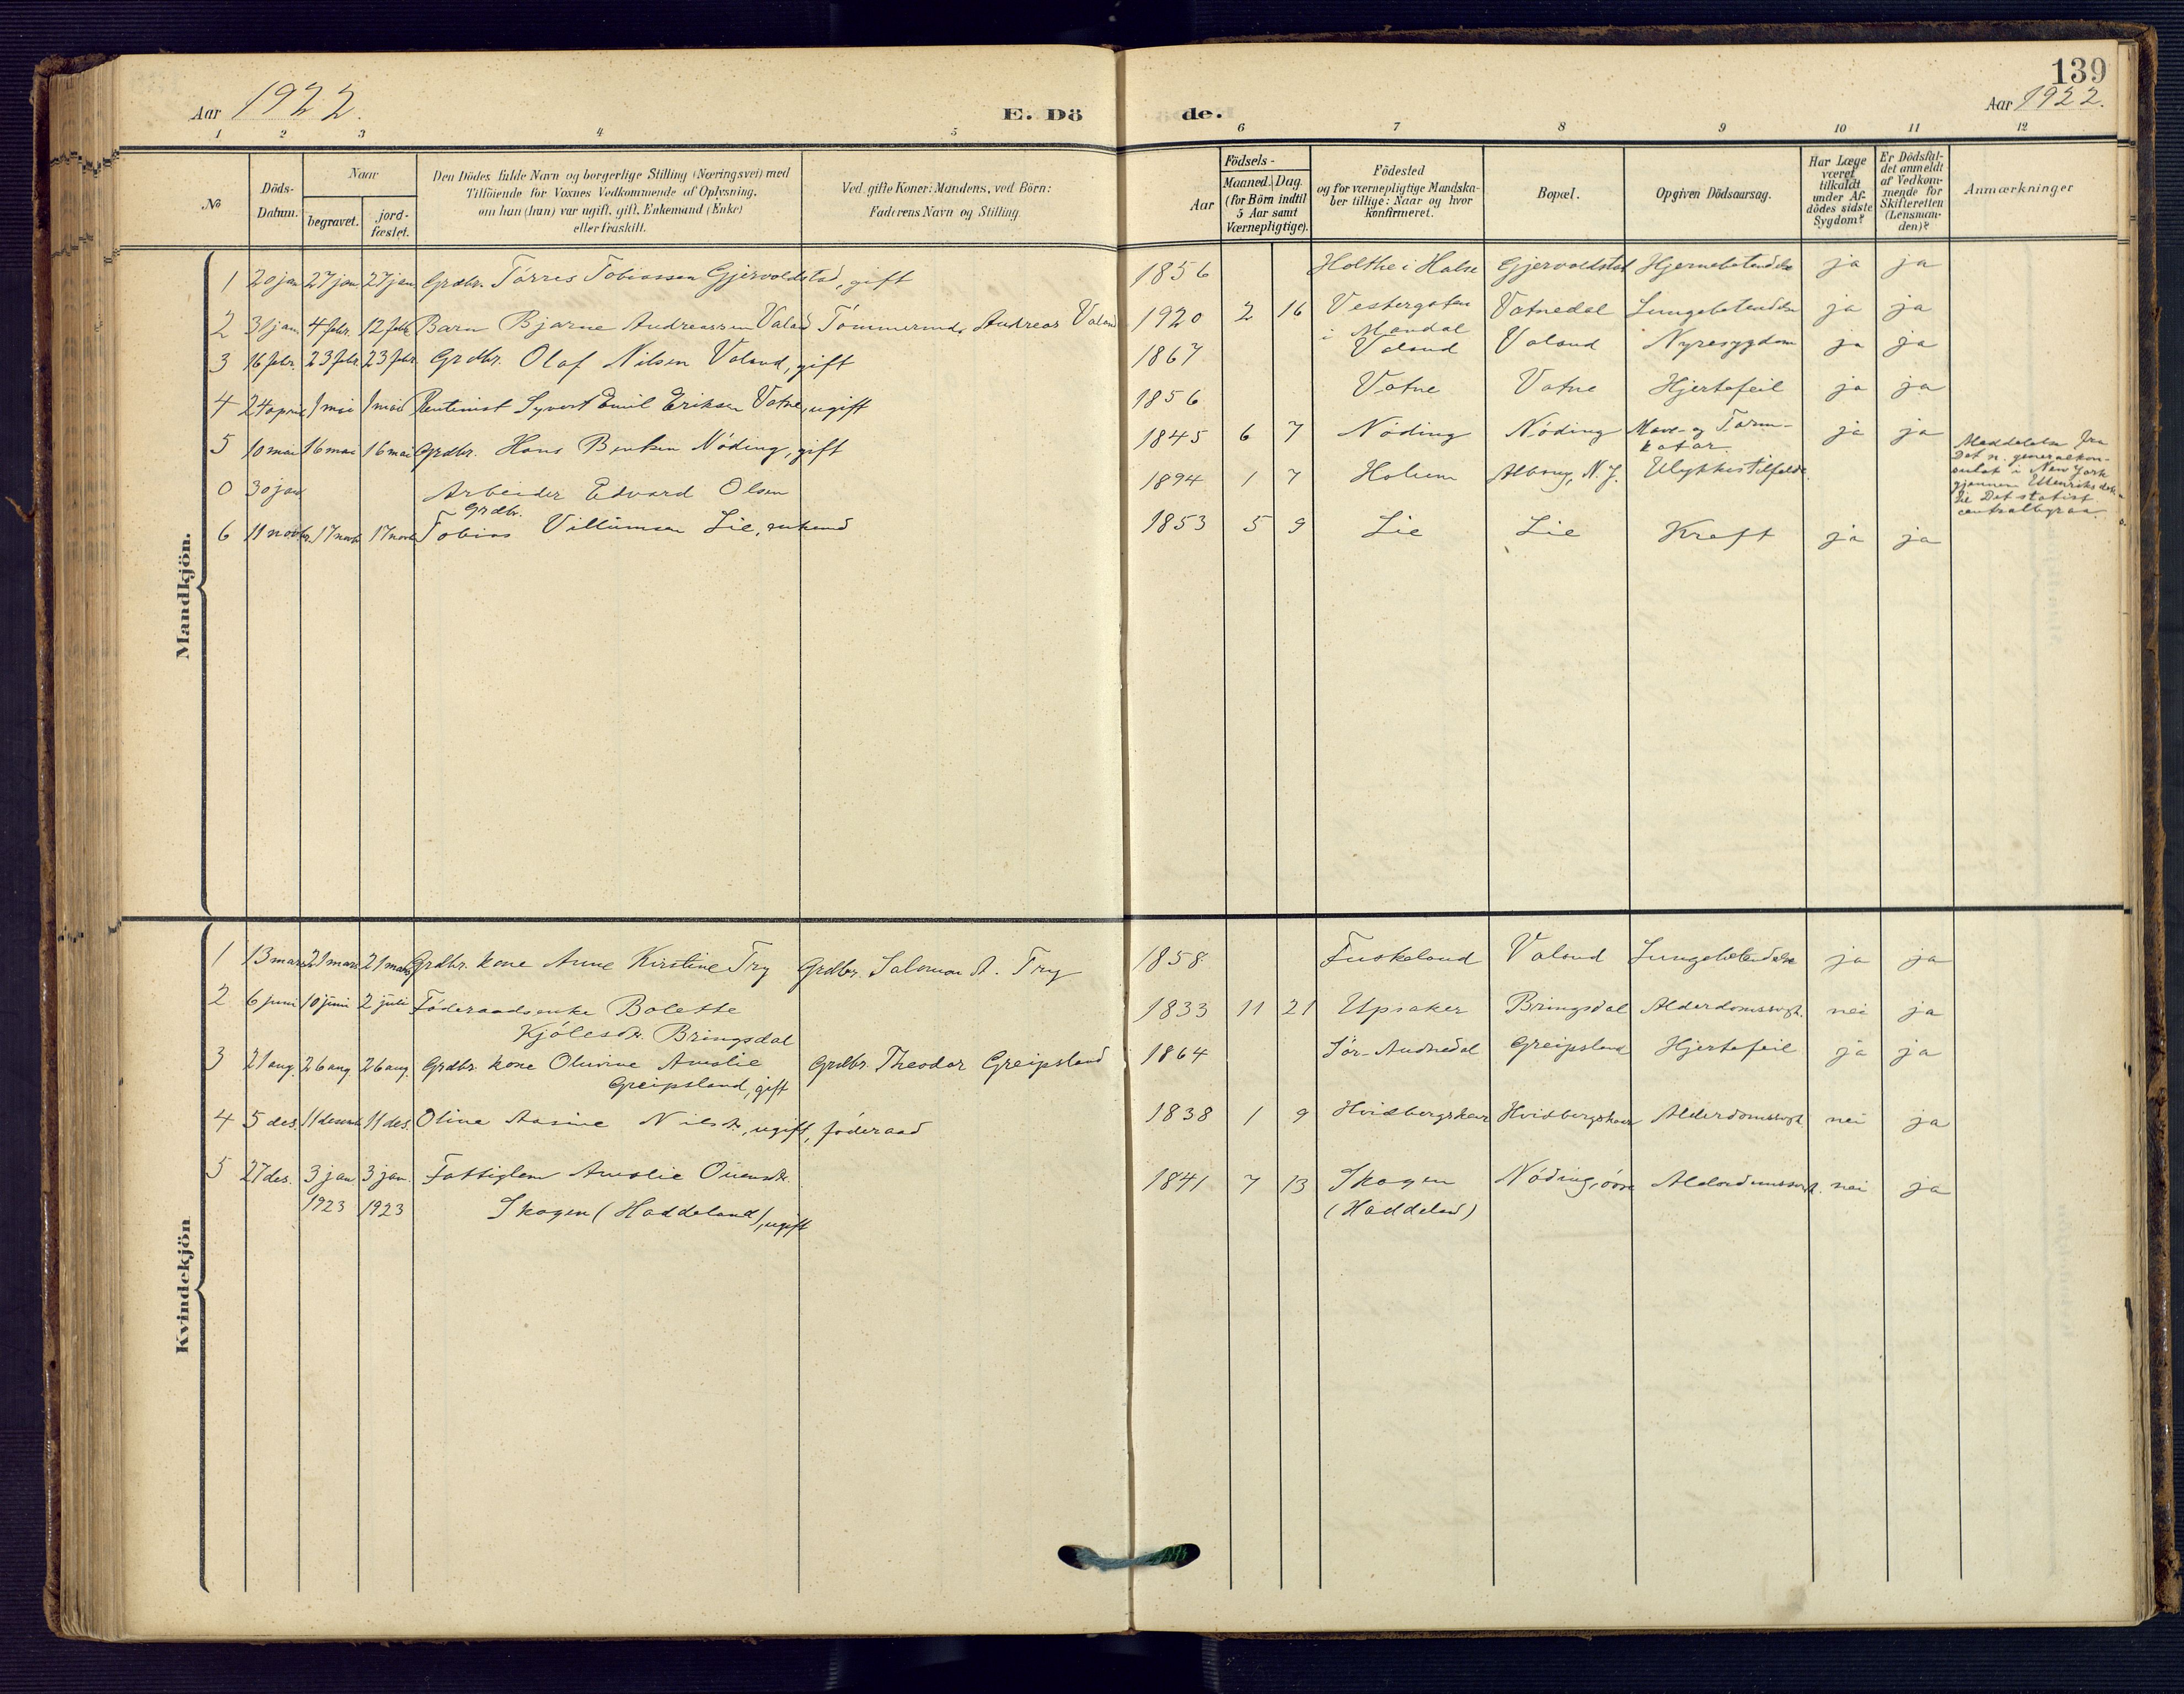 139
Aar 1922.
E. Dö
de.
Aar 1922.
1 2 3 4 5 6 7 8 9 10 11 12
№
Döds-Datum.
Naar
begravet.
jord-fæstet.
Den Dödes fulde Navn og borgerlige Stilling (Næringsvei) med
Tilföiende for Voxnes Vedkommende af Oplysning,
om han (hun) var ugift, gift, Enkemand (Enke)
eller fraskilt.
Ved gifte Koner: Mandens, ved Börn:
Faderens Navn og Stilling.
Födsels-
Aar
Maaned. Dag.
(for Börn indtil
5 Aar samt
Værnepligtige).
Födested
og for værnepligtige Mandska-
ber tillige: Naar og hvor
konfirmeret.
Bopæl.
Opgiven Dödsaarsag.
Har Læge
været
tilkaldt
under Af-
dödes sidste
Sygdom?
Er Dödsfal-
det anmeldt
af Vedkom-
mende for
Skifteretten
(Lensman-
den)?
Anmærkninger
Mandkjön.
1 20 jan 27 jan 27 jan Grdbr. Törres Tobiassen Gjervoldstad, gift 1856 Holthe i Halse Gjervoldstad Hjernebetendelse ja ja
2 31 jan. 4 febr. 12 febr. Barn Bjarne Andreassen Valand Tömmermd. Andreas Valand 1920 2 16 Vestergaten Vatnedal Lungebetendelse ja ja
i Mandal
3 16 febr. 23 febr. 23 febr. Grdbr. Olaf Nilsen Valand, gift 1867 Valand Valand Nyresygdom ja ja
4 24 april 1 mai 1 mai Rentenist Syvert Emil Eriksen Vatne, ugift 1856 Vatne Vatne Hjertefeil ja ja
5 10 mai 16 mai 16 mai Grdbr. Hans Bentsen Nöding, gift 1845 6 7 Nöding Nöding Mave- og Tarm- ja ja
katar.
0 30 jan Arbeider Edvard Olsen 1894 1 7 Holum Albany, N. J. Ulykkestilfelde.
Meddelelse fra
Det n. generalkon-
sulat i New York
gjennem Utenriks dep.
Det statist.
centralbyraa.
Grdbr.
6 11 novbr. 17 novb. 17 novb. Tobias Villumsen Lie, enkemd 1853 5 9 Lie Lie Kreft ja ja
Kvindekjön
1 13 mars 21 mars 21 mars Grdbr. kone Anne Kirstine Try Grdbr. Salomon A. Try 1858 Fuskeland Valand Lungebetendelse ja ja
2 6 juni 10 juni 2 juli Föderaadsenke Bolette 1833 11 21 Upsaker Bringsdal Alderdomssvgh. nei ja
Kjölesdtr. Bringsdal
3 21 aug. 26 aug 26 aug. Grdbr. kone Olivine Amalie Grdbr. Theodor Greipsland 1864 Sör-Audnedal Greipsland Hjertefeil ja ja
Greipsland, gift
4 5 des. 11 desemb. 11 des. Oline Aasine Nilsdtr., ugift, föderaad 1838 1 9 Hvidbergskaar Hvidbergskaar Alderdomssvgh. nei ja
5 27 des. 3 jan 3 jan. Fattiglem Amalie Ouensdtr. 1841 7 13 Skogen Nöding, övre Alderdomssvgh. nei ja
1923 1923 Skogen (Haddeland), ugift (Haddeland)